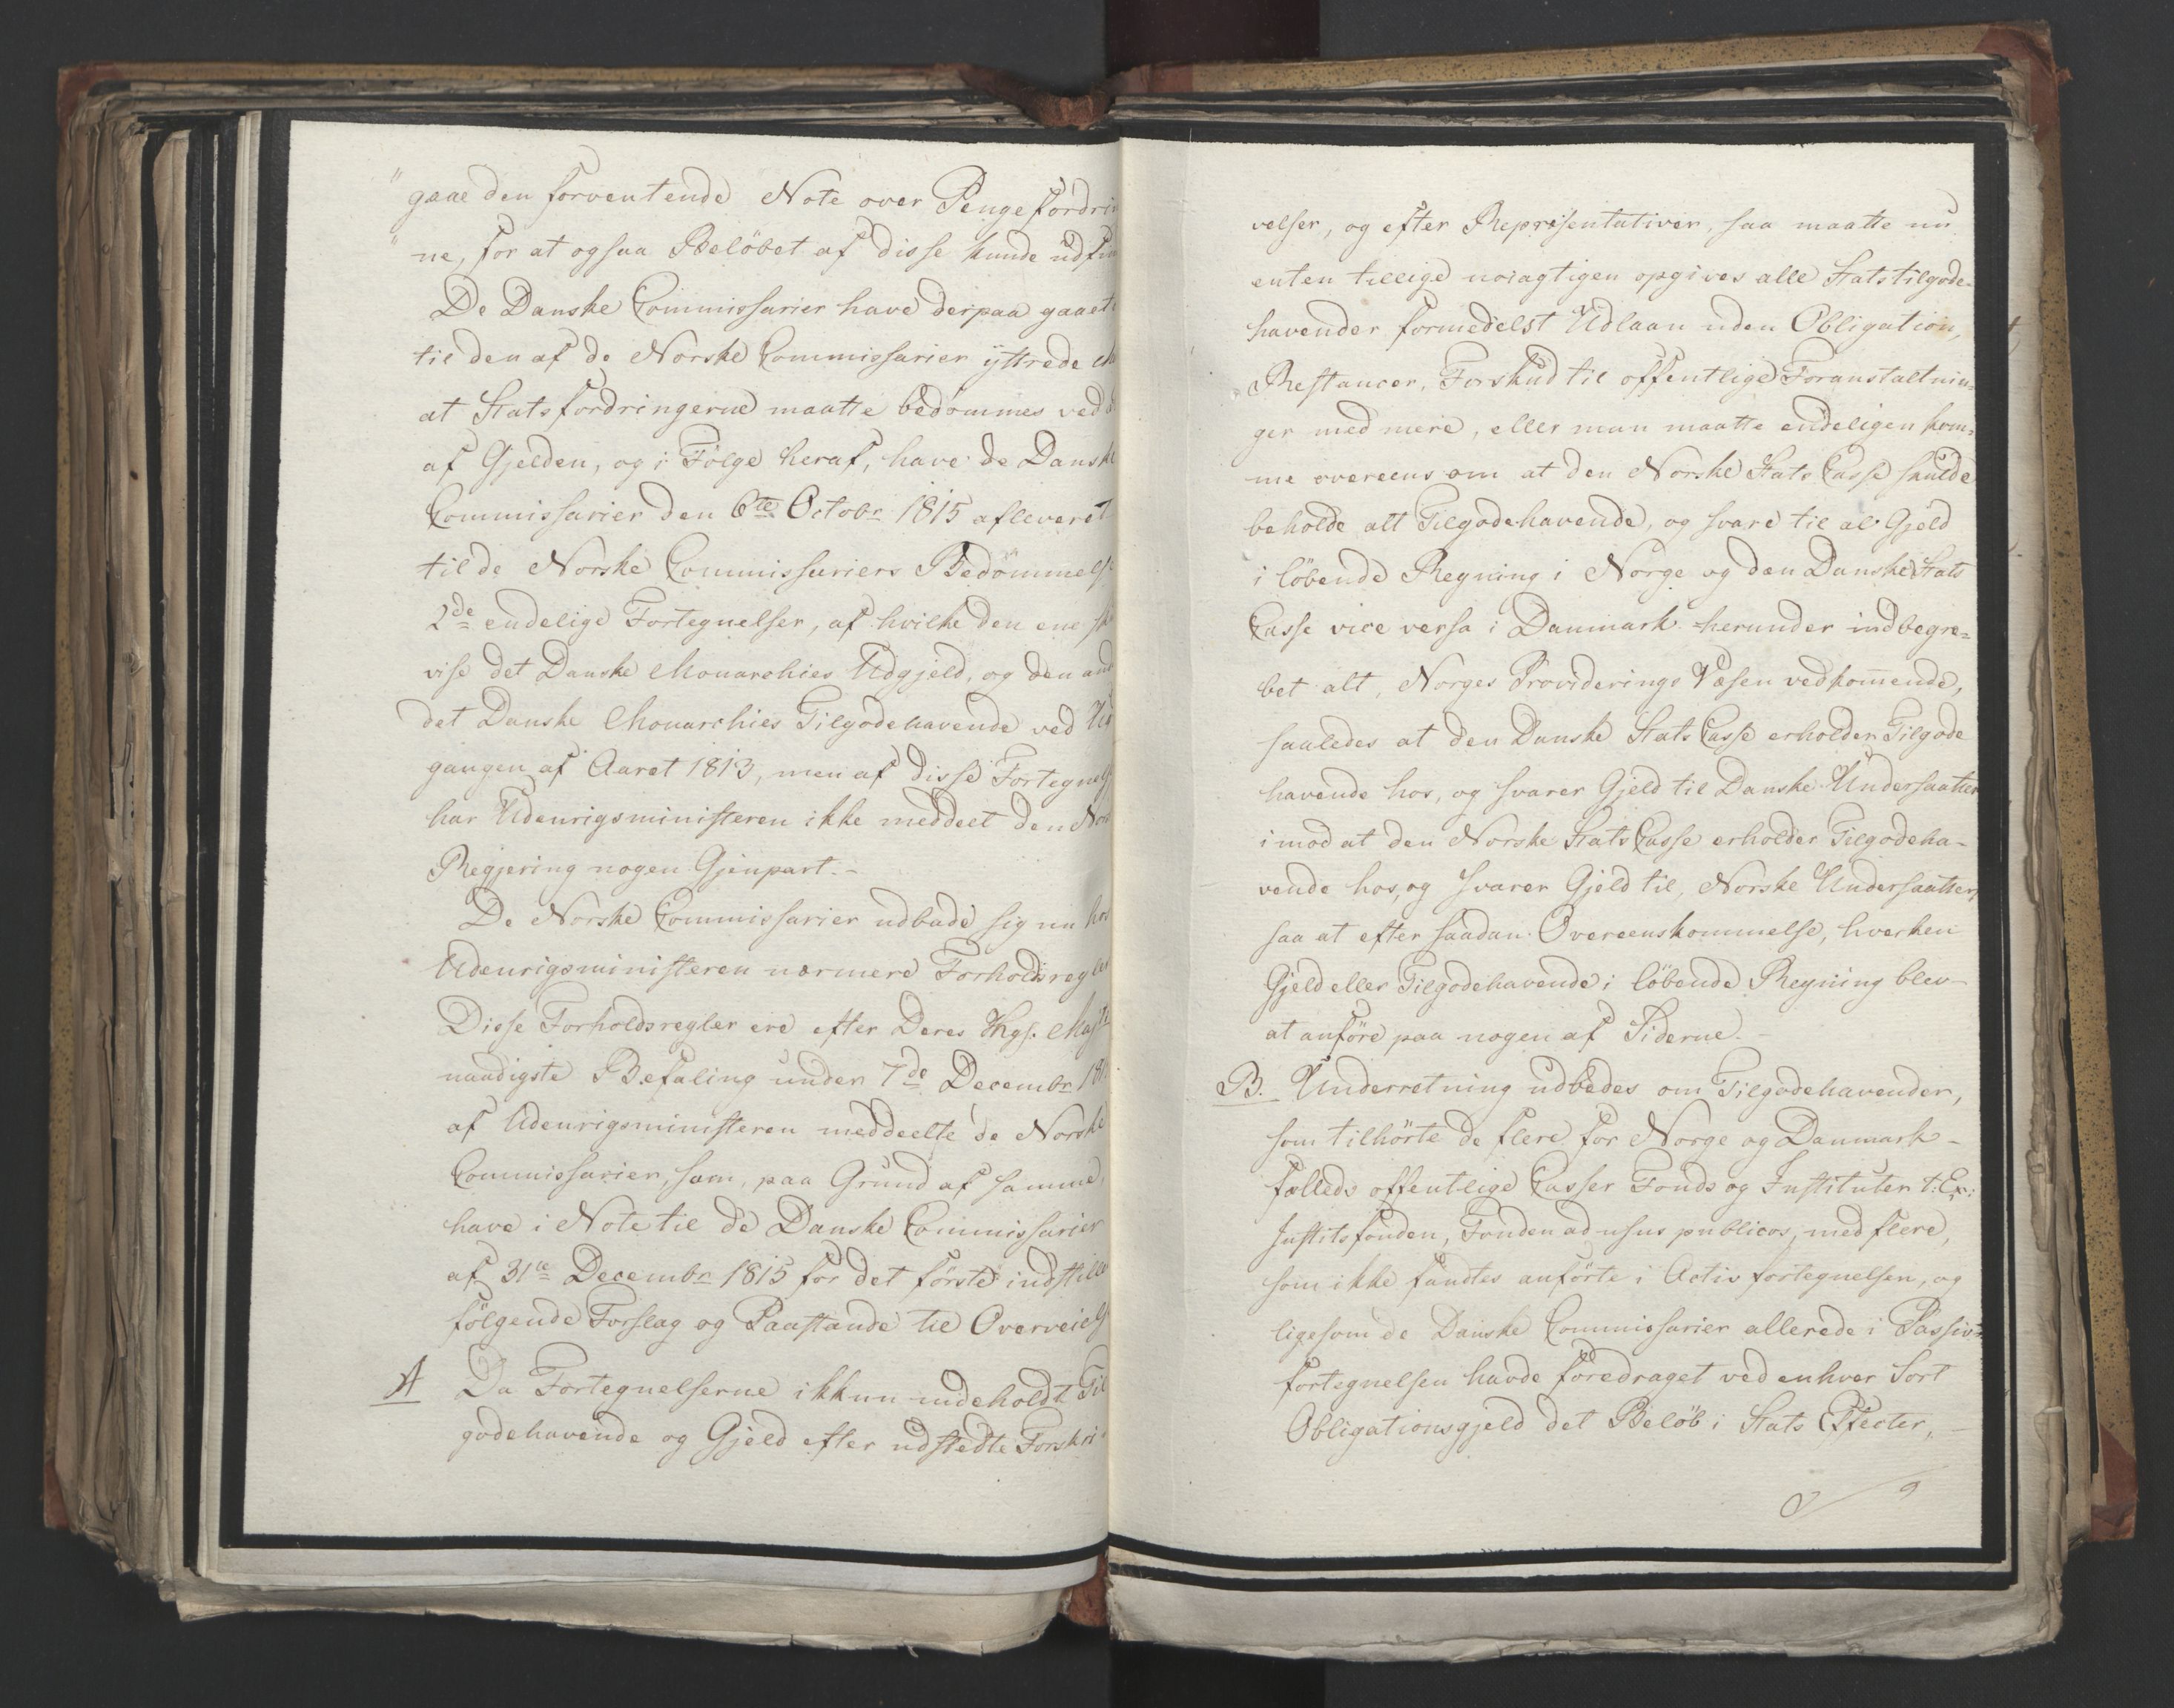 " gaae den forventende Note over Pengefordrin
" ne, for at ogsaa Belöbet af disse kunde udfin
De Danske Commissarier have derpaa gaaet
til den af de Norske Commissarier yttrede
at Statsfordringerne maatte bedömmes ved
af Gjelden, og i Fölge heraf, have de Danske
Commissarier den 6te Octobr 1815 afleveret
til de Norske Commissariers Bedömmelse
2de endelige Fortegnelser, af hvilke den ene
vise det Danske Monarchies Udgjeld, og den and
det Danske Monarchies Tilgodehavende ved Ud
gangen af Aaret 1813, men af disse Fortegnels
har Udenrigsministeren ikke meddeelt den Nor
Regjering nogen Gjenpart.-
De Norske Commissarier udbade sig nu hos
Udenrigsministeren nærmere Forholdsregler
Disse Forholdsregler ere efter Deres Kgs. Majts
naadigste Befaling under 7de Decembr 181
af Udenrigsministeren meddeelte de Norske
Commissarier, som, paa Grund af samme,
have i Note til de Danske Commissarier
af 31te Decembr 1815 for det förste indstillet
fölgende Forslag og Paastande til Overveiels
A Da Fortegnelserne ikkun indeholdt Til
godehavende og Gjeld efter udstedte Forskri
velser, og efter Repræsentativer, saa maatte nu
enten tillige nöiagtigen opgives alle Statstilgode-
havender formedelst Udlaan uden Obligation,
Restancer, Forskud til offentlige Foranstaltnin=
ger med mere, eller man maatte endeligen kom=
me overeens om at den Norske Stats Casse skulde
beholde alt Tilgodehavende, og svare til al Gjeld
i löbende Regning i Norge og den Danske Stats
Casse vice versa i Danmark herunder indbegre=
bet alt, Norges Provideringsvæsen vedkom̄ende,
saaledes at den Danske Stats Casse erholder Tilgode
havende hos, og svarer Gjeld til Danske Undersaatter
imod at den Norske Stats Casse erholder Tilgodeha-
vende hos, og svarer Gjeld til, Norske Undersaatter,
saa at efter saadan Overeenskommelse, hverken
Gjeld eller Tilgodehavende i löbende Regning blev
at anföre paa nogen af Siderne.-
B. Underretning udbedes om Tilgodehavender,
som tilhörte de flere for Norge og Danmark-
fælleds offentlige Casser Fonds og Instituter t: Ex:
Justitsfonden, Fonden ad usus publicos, med flere,
som ikke fandtes anförte i Activ fortegnelsen, og
ligesom de Danske Commissarier allerede i Passiv=
fortegnelsen havde foredraget ved enhver Sort
Obligationsgjeld det Belöb i Stats Effecter, -